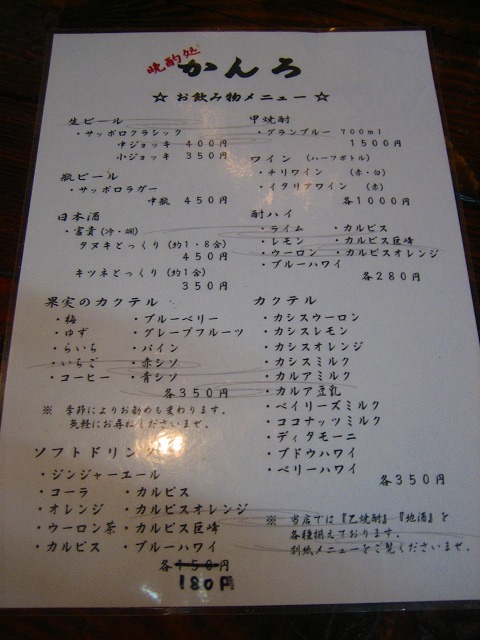 晩酌処
かんろ
☆ お飲み物メニュー ☆
生ビール
・サッポロクラシック
中ジョッキ ４００円
小ジョッキ ３５０円
瓶ビール
・サッポロラガー
中瓶 ４５０円
日本酒
・富貴(冷・燗)
タヌキとっくり (約１・８合)
４５０円
キツネとっくり (約１合)
３５０円
果実のカクテル
・梅 ・ブルーベリー
・ゆず ・グレープフルーツ
・らいち ・パイン
・いちご ・赤シソ
・コーヒー ・青シソ
各３５０円
※ 季節によりお勧めも変わります。
気軽にお尋ねくださいませ。
ソフトドリンク
・ジンジャーエール
・コーラ ・カルピス
・オレンジ ・カルピスオレンジ
・ウーロン茶 ・カルピス巨峰
・カルピス ・ブルーハワイ
各１５０円
１８０円
甲焼酎
・グランブルー ７００ml
１５００円
ワイン (ハーフボトル)
・チリワイン (赤・白)
・イタリアワイン (赤)
各１０００円
酎ハイ
・ライム ・カルピス
・レモン ・カルピス巨峰
・ウーロン ・カルピスオレンジ
・ブルーハワイ
各２８０円
カクテル
・カシスウーロン
・カシスレモン
・カシスオレンジ
・カシスミルク
・カルアミルク
・カルア豆乳
・ベイリーズミルク
・ココナッツミルク
・ディタモーニ
・ブドウハワイ
・ベリーハワイ
各３５０円
※ 当店では『乙焼酎』『地酒』を
各種揃えております。
別紙メニューをご覧くださいませ。